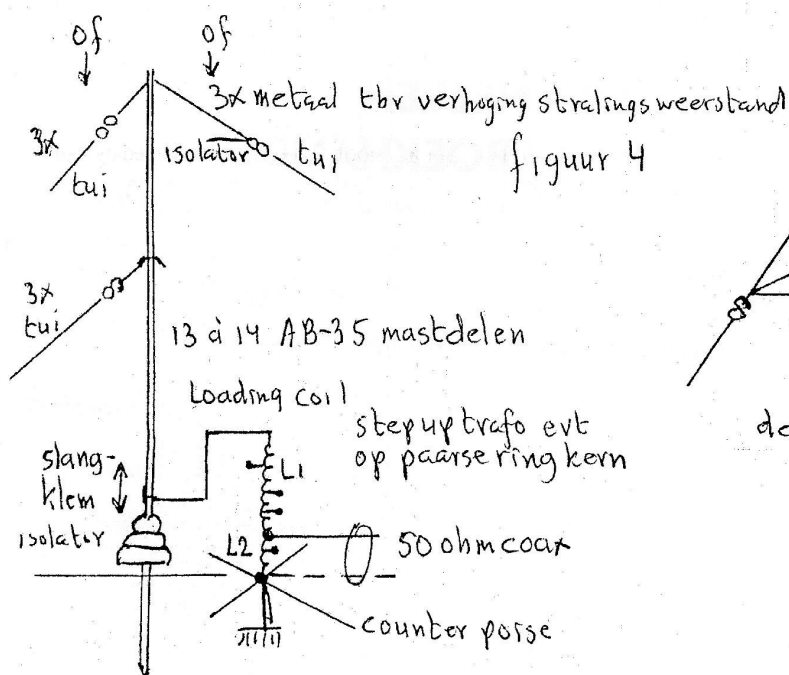 of
of
3x metaal tbv verhoging stralingsweerstand
3x
tui
isolator
tui
figuur 4
3x
tui
13 à 14 AB-35 mastdelen
Loading coil
stepup trafo evt
op paarse ringkern
slang-
klem
isolator
L1
L2
50 ohm coax
counter porse
de